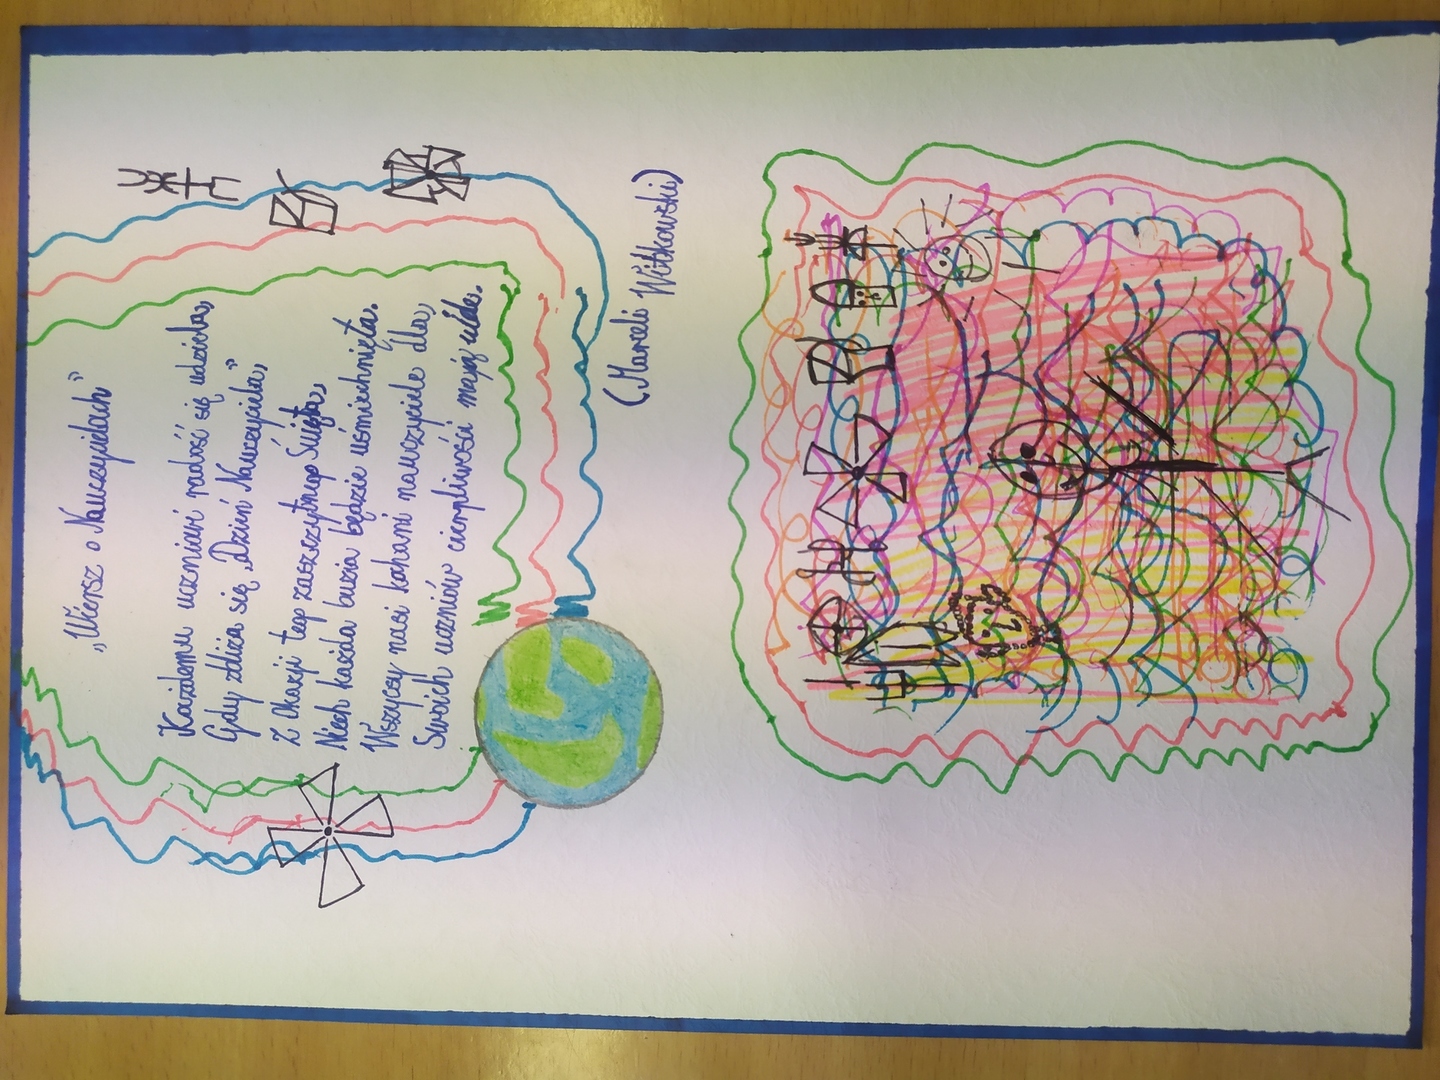 „Wiersz o Nauczycielach”
Każdemu uczniowi radość się udziela,
Gdy zbliża się „Dzień Nauczyciela”,
Z Okazji tego zaszczytnego Święta,
Niech każda buzia będzie uśmiechnięta.
Wszyscy nasi kochani nauczyciele dla,
Swoich uczniów cierpliwości mają wiele.
(Marceli Witkowski)